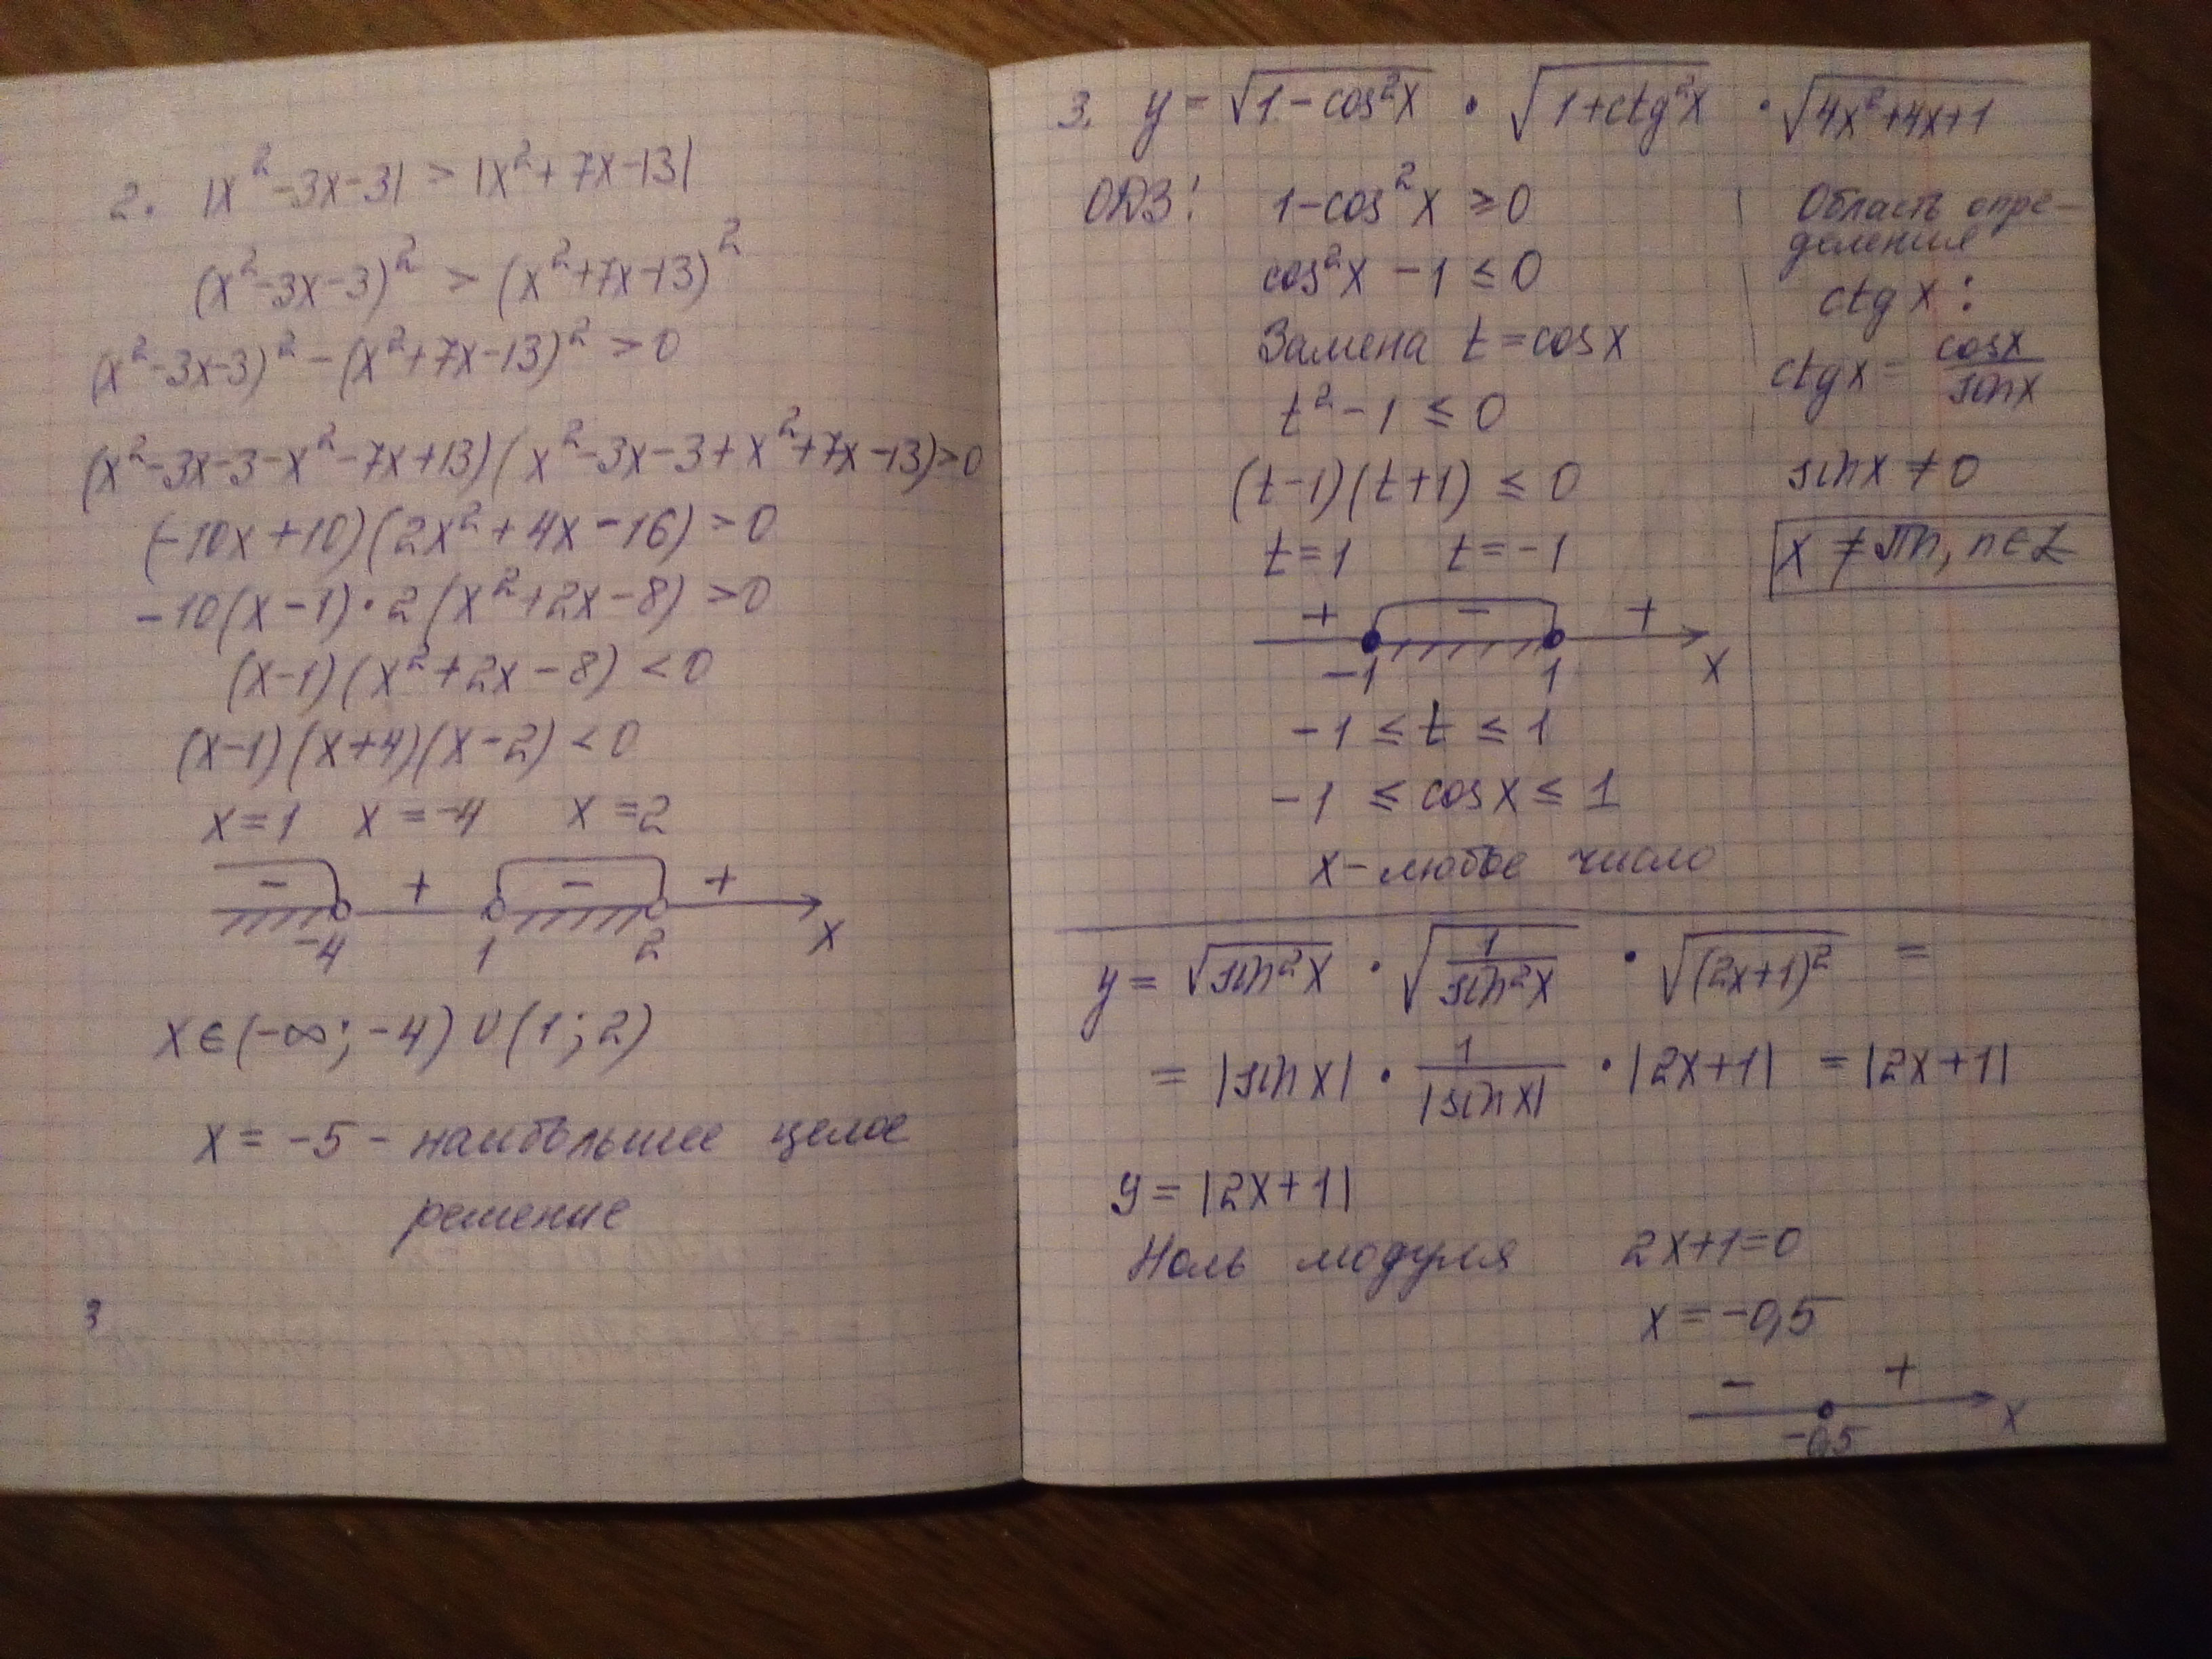 2. |x²-3x-3| > |x²+7x-13|
(x²-3x-3)² > (x²+7x-13)²
(x²-3x-3)² - (x²+7x-13)² > 0
(x²-3x-3-x²-7x+13)(x²-3x-3+x²+7x-13)>0
(-10x+10)(2x²+4x-16) > 0
-10(x-1)·2(x²+2x-8) > 0
(x-1)(x²+2x-8) < 0
(x-1)(x+4)(x-2) < 0
x=1 x=-4 x=2
- + - +
-4 1 2 x
x∈(-∞; -4)∪(1; 2)
x = -5 - наибольшее целое
решение
3
3. y = √(1-cos²x) · √(1+ctg²x) · √(4x²+4x+1)
ОДЗ: 1-cos²x ≥ 0
cos²x - 1 ≤ 0
Замена t=cosx
t²-1 ≤ 0
(t-1)(t+1) ≤ 0
t=1 t=-1
+ - +
-1 1 x
-1 ≤ t ≤ 1
-1 ≤ cosx ≤ 1
x-любое число
Область опре-
деления
ctg x:
ctgx = cosx/sinx
sinx ≠ 0
x ≠ πn, n∈Z
y = √(sin²x) · √(1/sin²x) · √((2x+1)²) =
= |sinx| · 1/|sinx| · |2x+1| = |2x+1|
y = |2x+1|
Ноль модуля 2x+1=0
x = -0,5
- +
-0,5 x